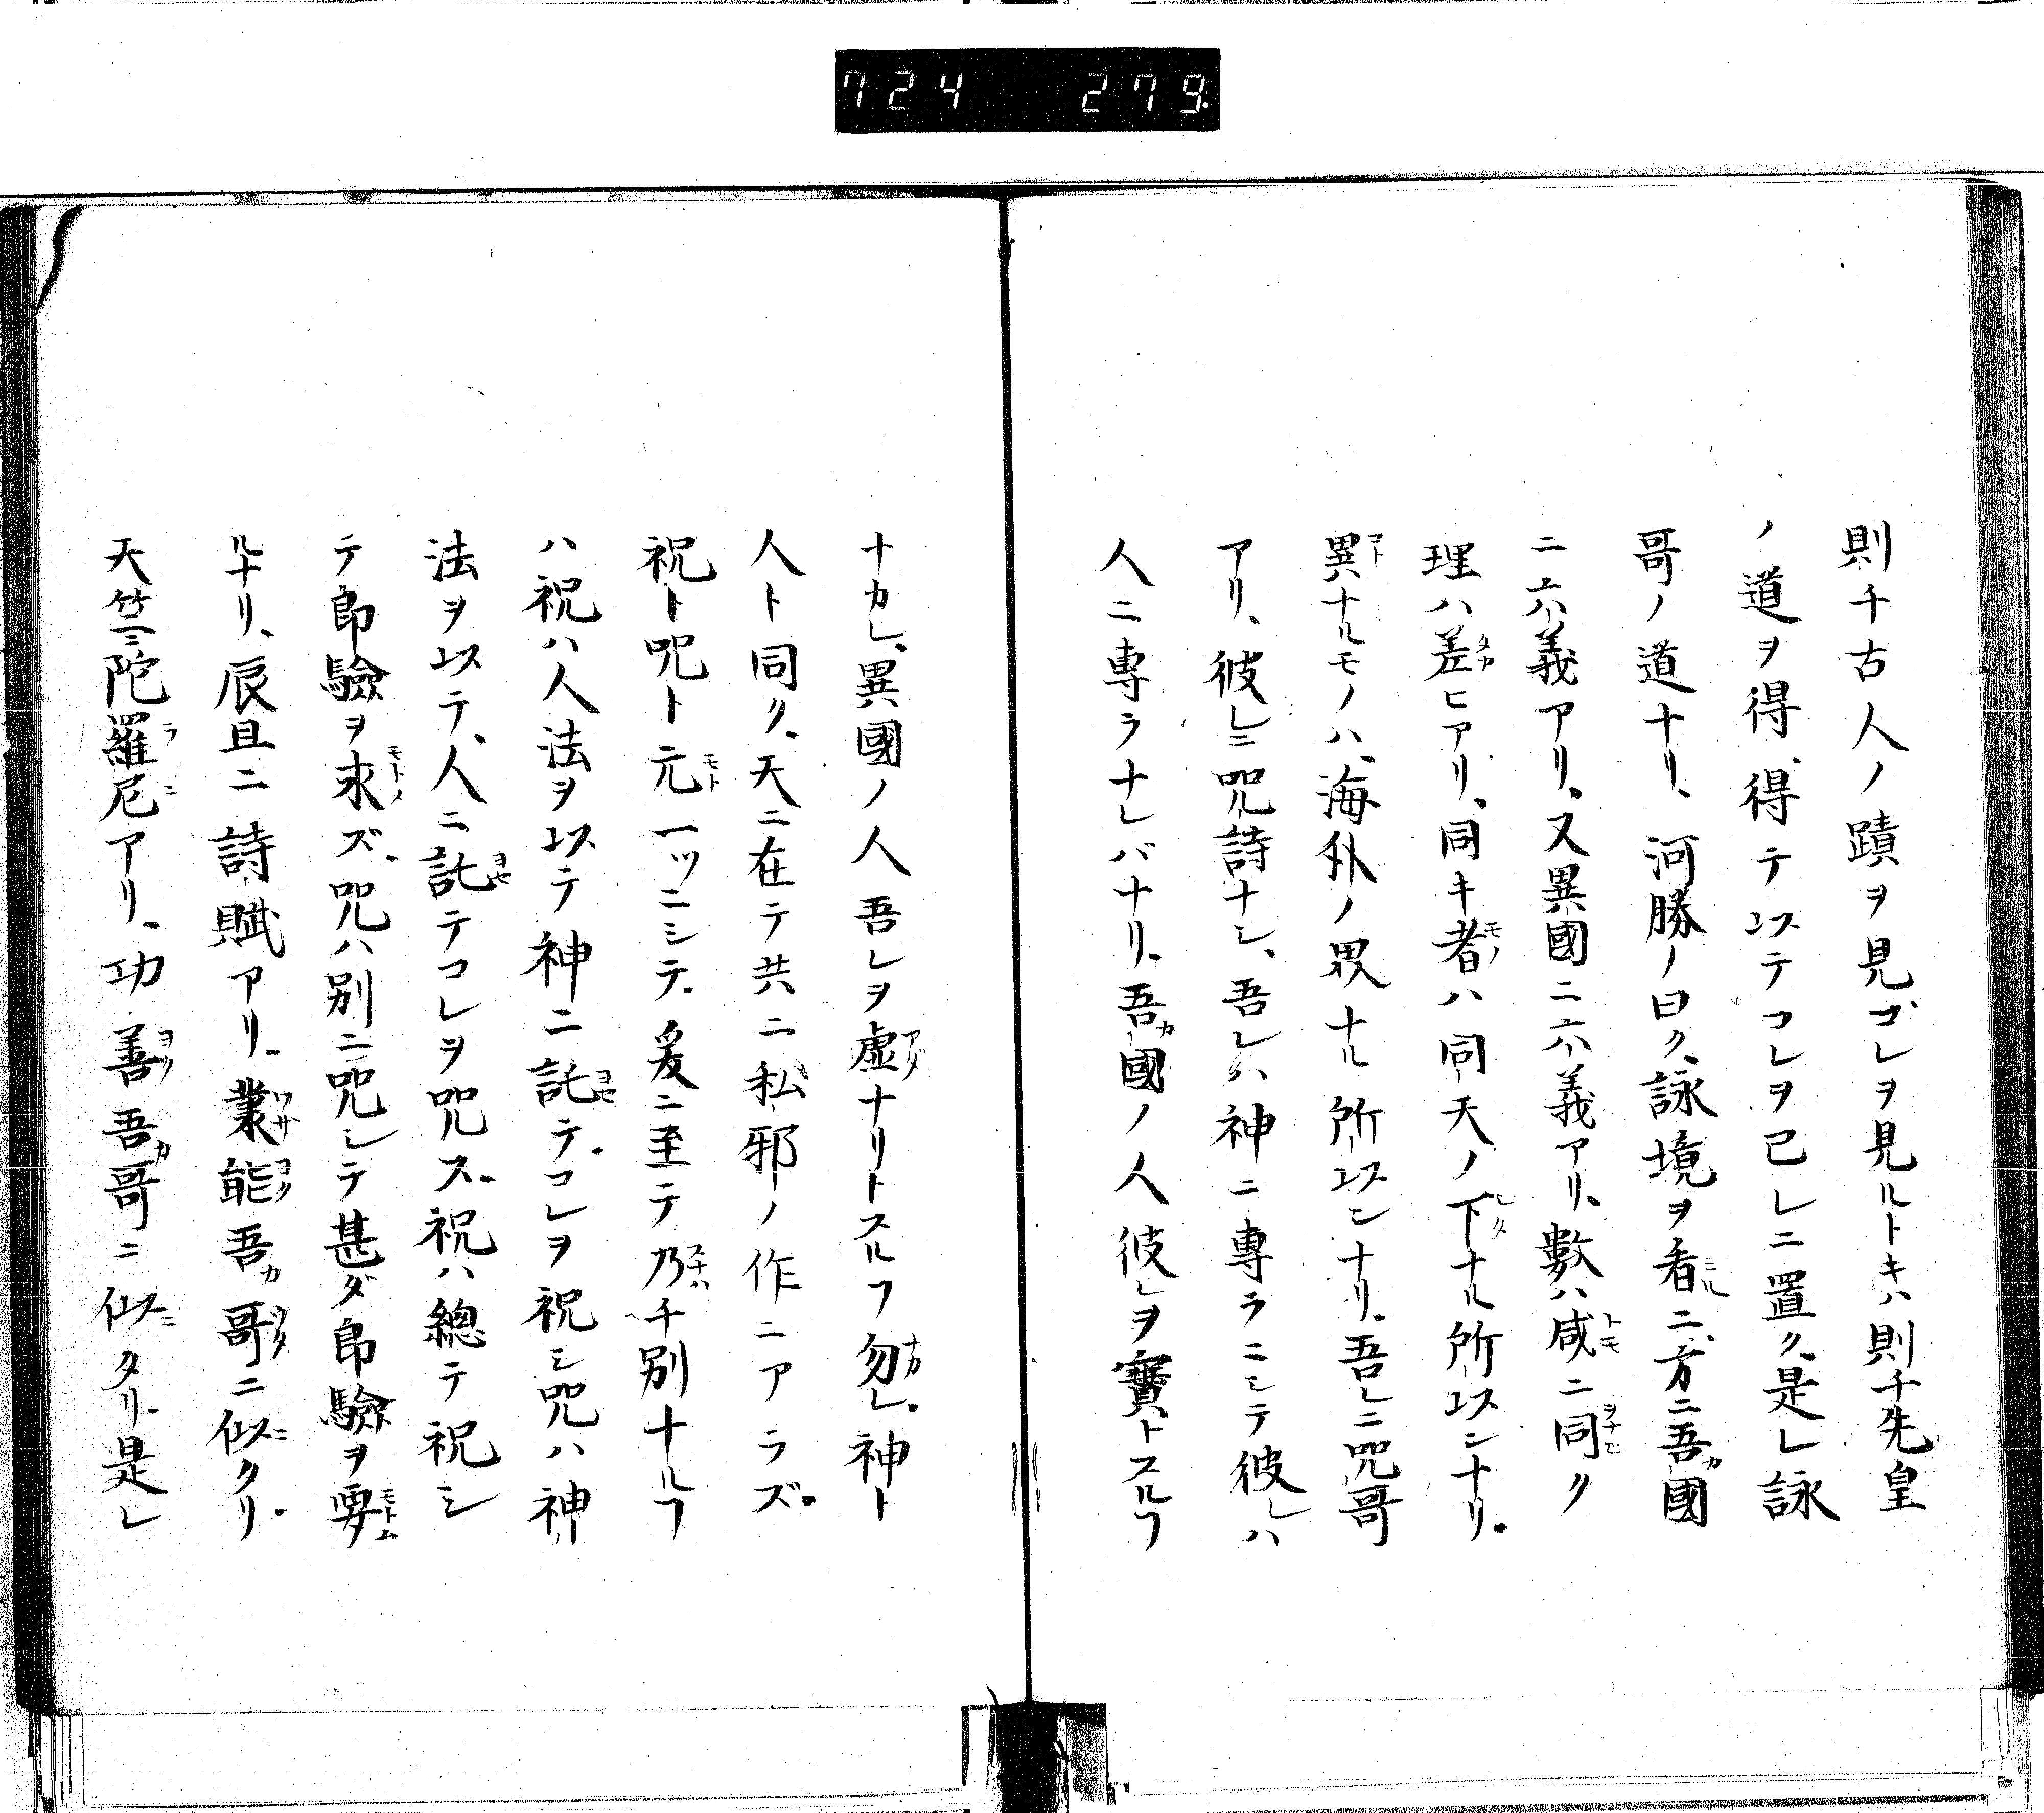 724 279.
則千古人ノ蹟ヲ見、コレヲ見ルトキハ則千先皇
ノ道ヲ得、得テ以テコレヲ己レニ置ク、是レ詠
哥ノ道ナリ、河勝ノ曰ク、詠境ヲ看ニ、方ニ吾國
ニ六義アリ、又異國ニ六義アリ、數ハ咸ニ同ク
理ハ差ヒアリ、同キ者ハ同天ノ下ナル所以ンナリ。
異ナルモノハ、海外ノ界ナル所以ンナリ、吾レニ咒哥
アリ、彼レニ咒詩ナシ、吾レハ神ニ專ラニシテ彼レハ
人ニ專ラナレバナリ、吾國ノ人彼レヲ寶トスルヿ
ナカレ、異國ノ人吾レヲ虛ナリトスルヿ勿レ。神ト
人ト同ク、天ニ在テ共ニ私邪ノ作ニアラズ。
祝ト咒ト元一ツニシテ、爰ニ至テ乃チ別ナルヿ
ハ祝ハ人法ヲ以テ神ニ託テ、コレヲ祝シ咒ハ神
法ヲ以テ、人ニ託テコレヲ咒ス。祝ハ總テ祝シ
テ即驗ヲ求ズ、咒ハ別ニ咒シテ甚ダ即驗ヲ要
ルナリ、辰旦ニ詩賦アリ、業能吾哥ニ似タリ。
天竺ニ陀羅尼アリ、功善吾哥ニ似タリ、是レ